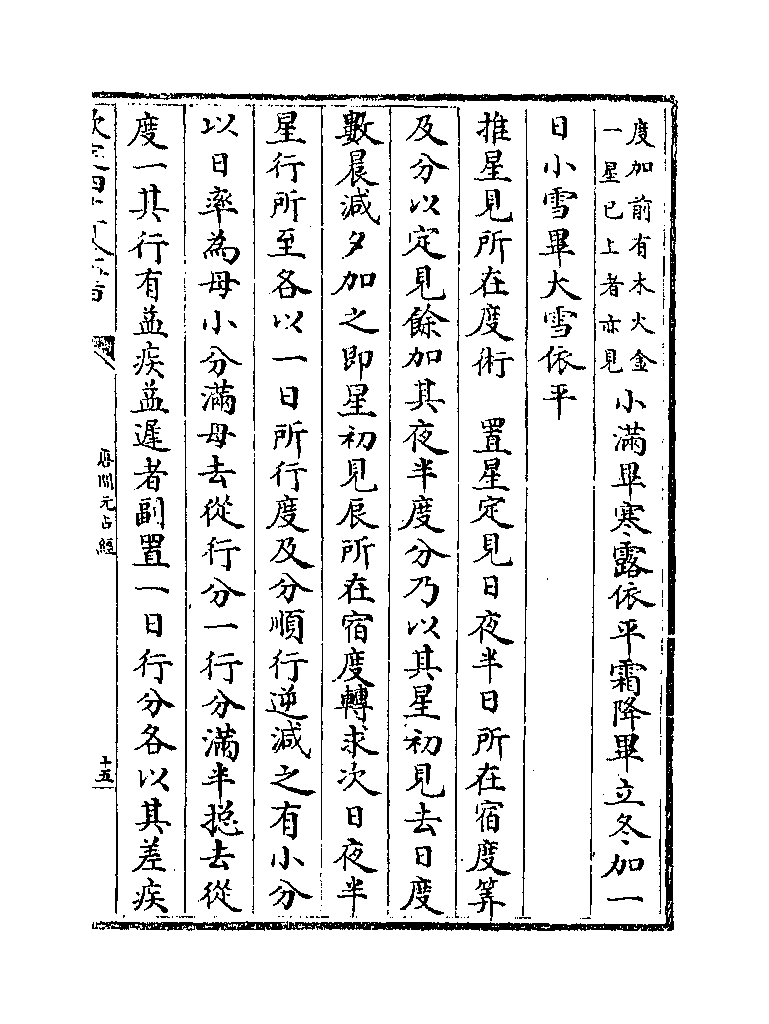 度加前有木火金
一星已上者亦見
小滿畢寒露依平霜降畢立冬加一
日小雪畢大雪依平
推星見所在度術　置星定見日夜半日所在宿度筭
及分以定見餘加其夜半度分乃以其星初見去日度
數晨減夕加之即星初見辰所在宿度轉求次日夜半
星行所至各以一日所行度及分順行逆減之有小分
以日率為母小分滿母去從行分一行分滿半捴去從
度一其行有益疾益遲者副置一日行分各以其差疾
唐開元占經
十五